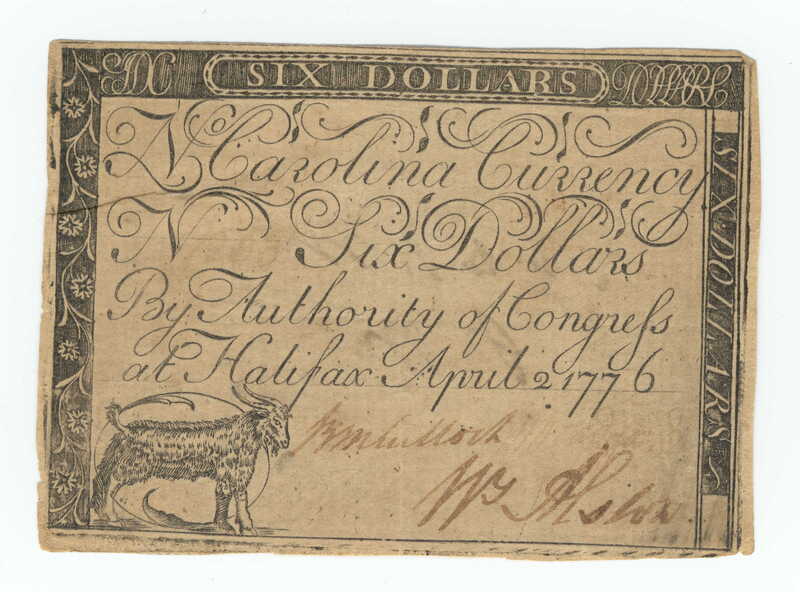 SIX SIX DOLLARS DOLLARS
No Carolina Currency
N Six Dollars
By Authority of Congress
at Halifax April 2 1776
Wm Alston
SIX DOLLARS